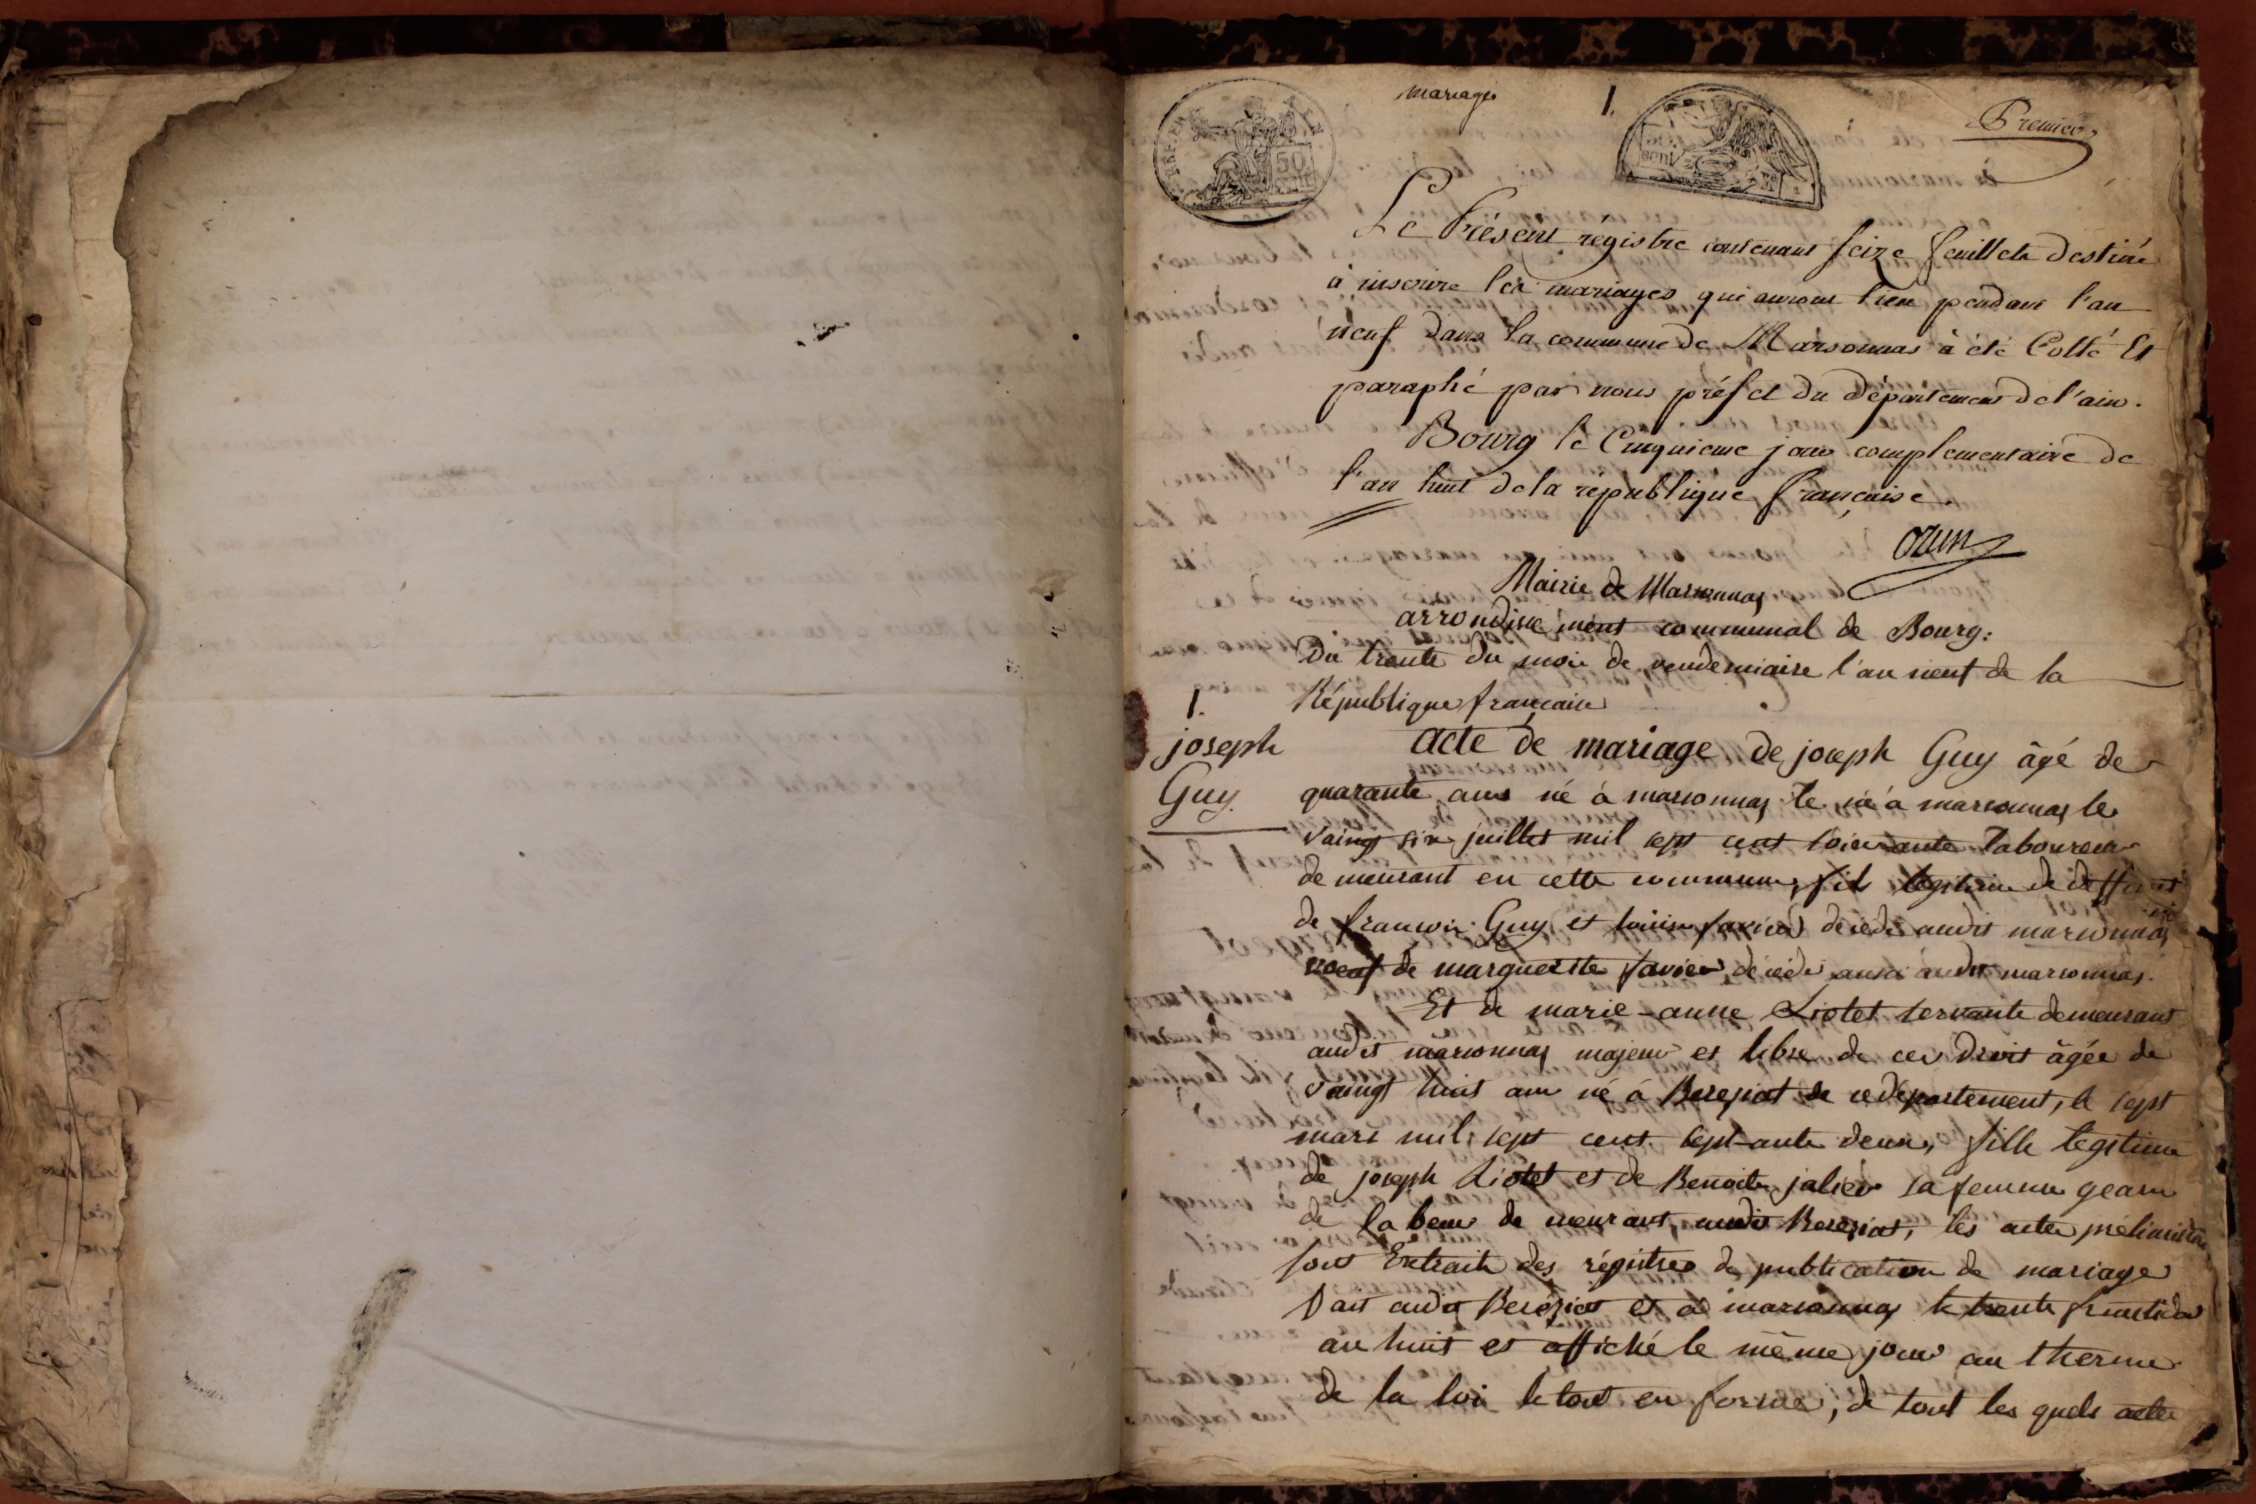 mariages
1.
Premier
REP. FR
50
Le Présent régistre contenant seize feuillets destiné
à inscrire les mariages qui auront lieu pendant l'an
neuf dans la commune de Marsonnas à été Cotté Et
paraphé par nous préfet du Département de l'ain.
Bourg le Cinquieme jour complementaire de
l'an huit de la république française
Ozun
Mairie de Marsonnas
arrondissement communal de Bourg:
Du trente du mois de vendemiaire l'an neuf de la
République française
1.
joseph
Guy
acte de mariage de joseph Guy âgé de
quarante ans né à marsonnas le né à marsonnas le
vaingt six juillet mil sept cent soixante laboureur
demeurant en cette commune, fils legitime de deffunt
de francois Guy et louise favier décédé audit marsonnas
veuf de marguerite favier décédé aussi audit marsonnas.
Et de marie-anne Liotet servante demeurant
audit marsonnas majeur et libre de ces droit âgée de
vaingt huit ans né à Bereziat de ce département, le sept
mars mil sept cent septante deux, fille legitime
de joseph Liotet et de Benoite jalier sa femme
de demeurant audit Bereziat, les actes
sont Extrait des régistres de publication de mariage
fait audit Bereziat et à marsonnas le trente fructidor
an huit et affiché le même jour au therme
de la loi le tout en forme, de tout les quels actes